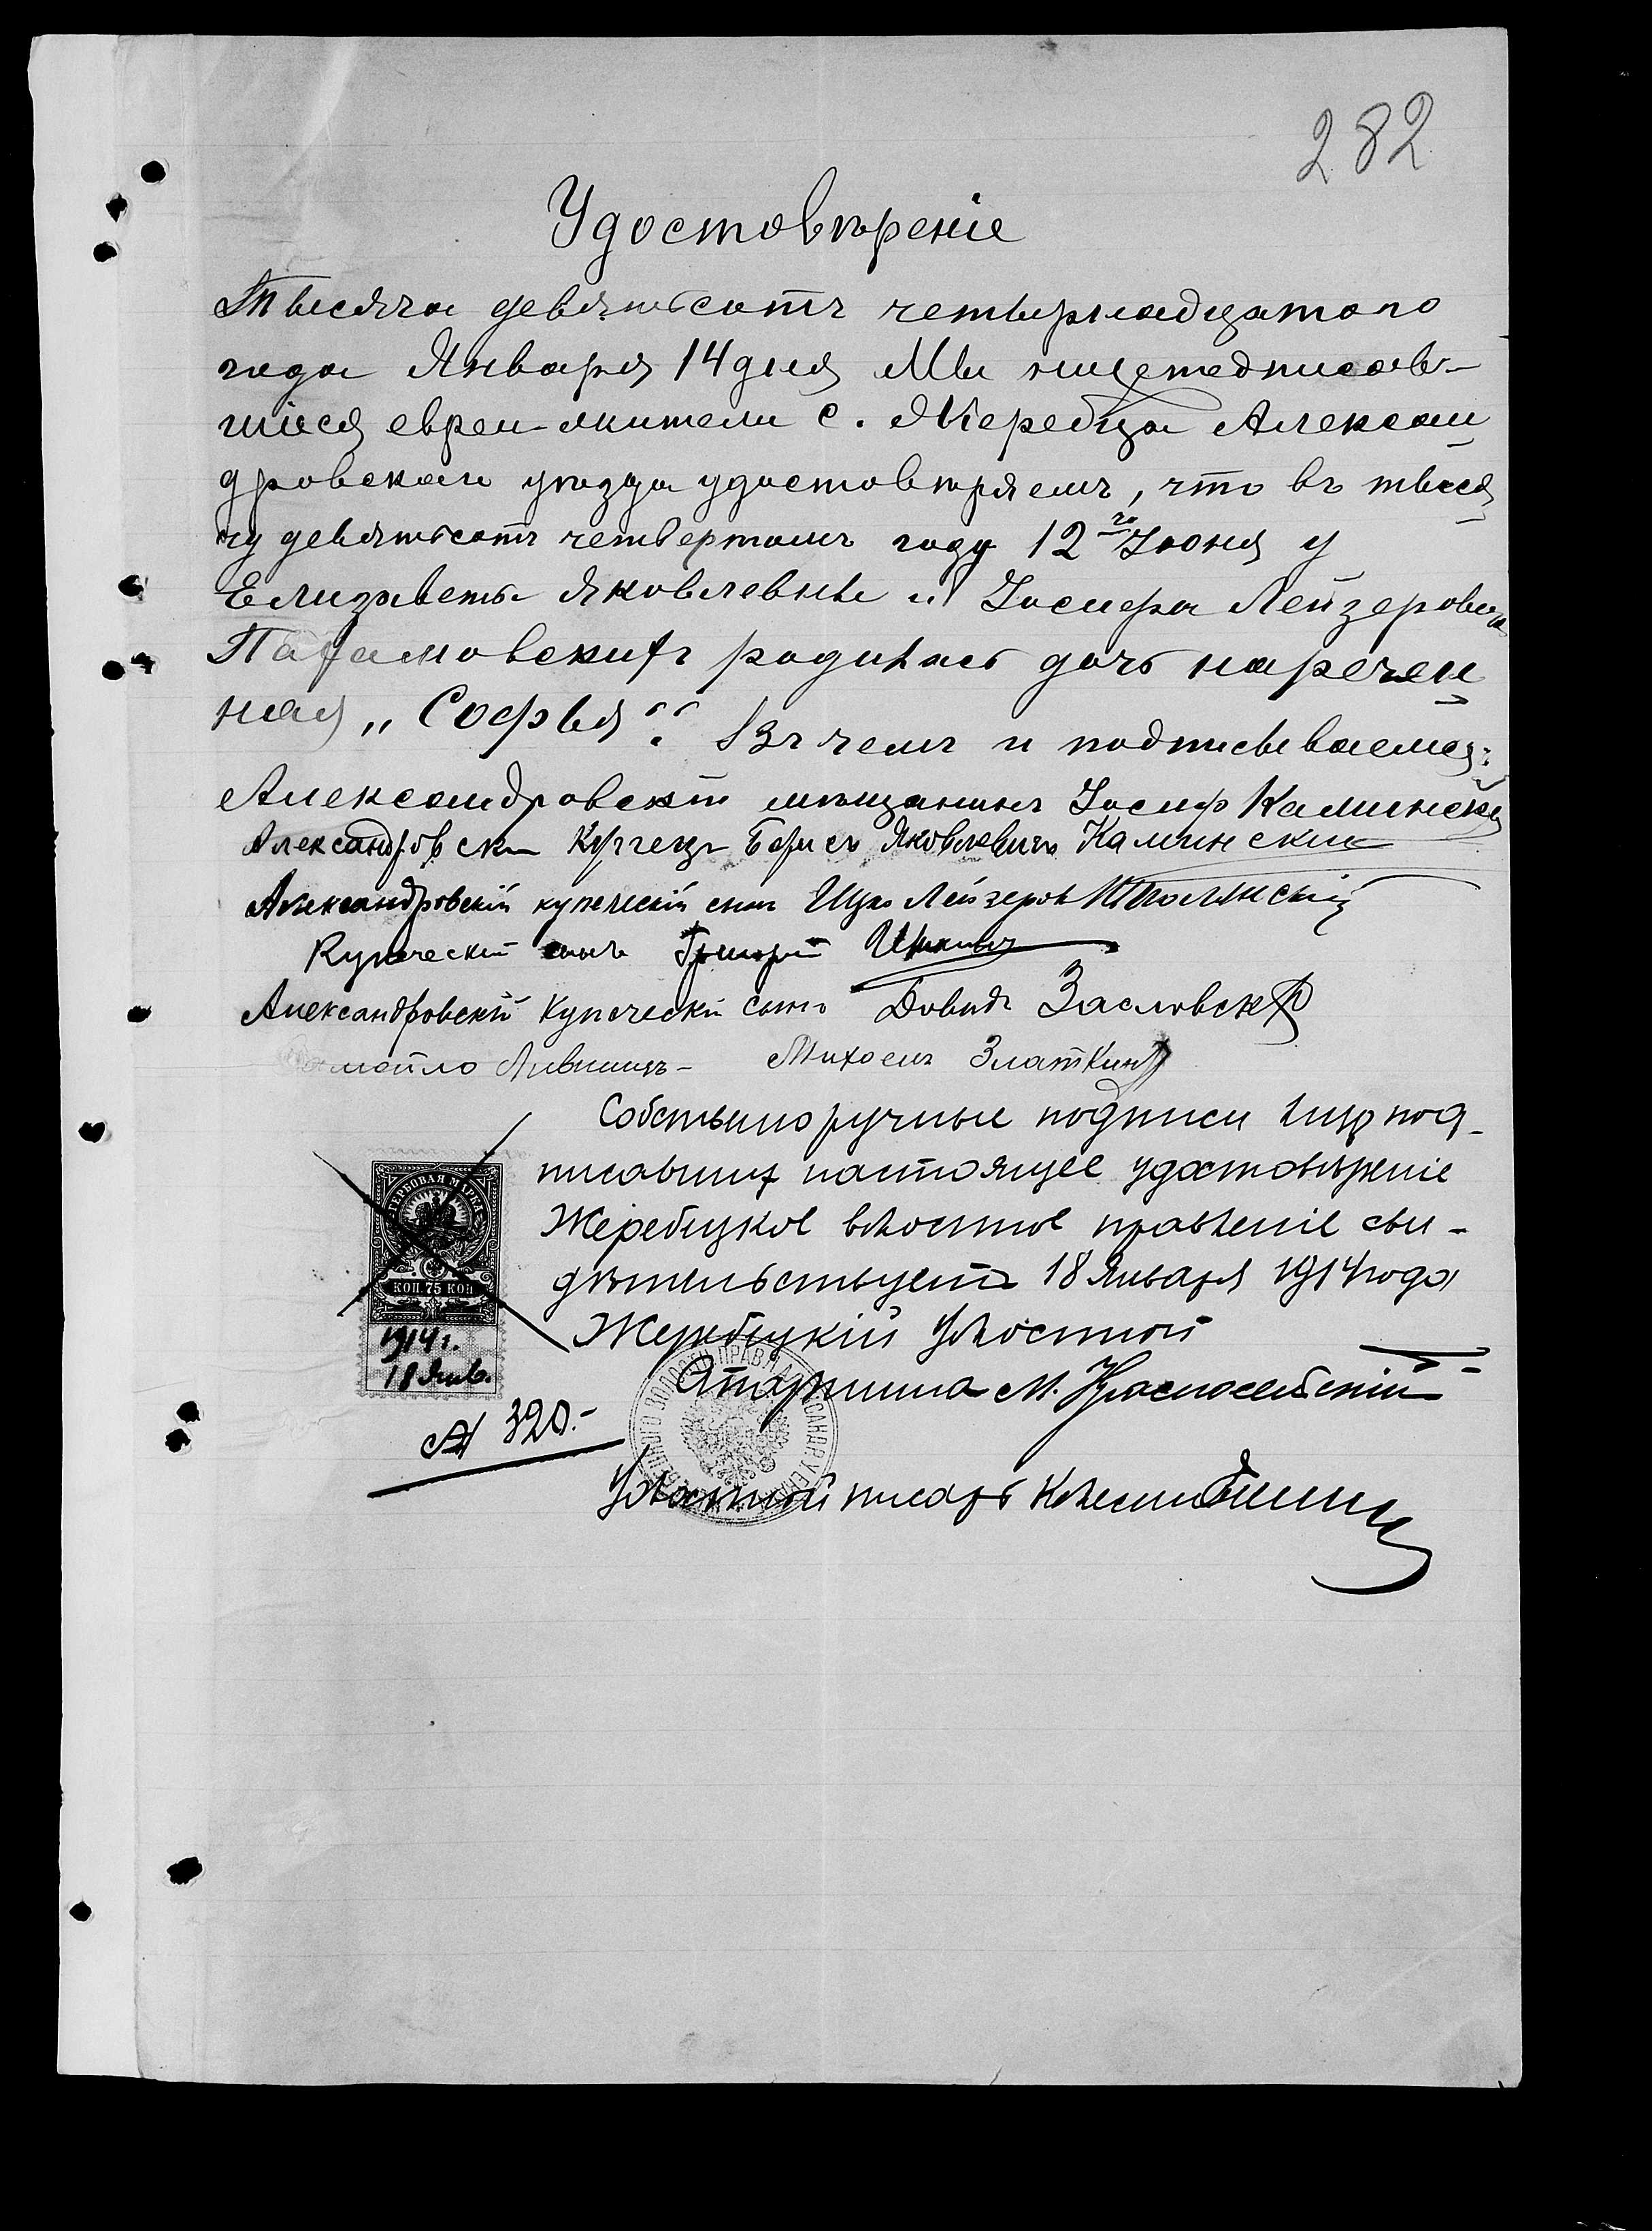 282
Удостовѣреніе
Тысяча девятьсотъ четырнадцатого
года Января 14 дня Мы нижеподписав-
шіеся евреи-жители с. Жеребца Алексан
дровскаго уѣзда удостовѣряемъ, что въ тыся
чу девятьсотъ четвертомъ году 12го Іюня у
Елизаветы Яковлевны и Іосифа Лейзерова
родилась дочь наречен
ная „Софья“. Въ чемъ и подписываемся:
Александровскій мѣщанинъ Іосифъ Каминскій
Александровскій Купецъ Борисъ Яковлевичъ Каминскій
Александровскій купеческій сынъ Ицко Лейзеровъ
Купеческій сынъ Григорій
Александровскій Купеческій сынъ Довидъ Заславскій
Лившицъ- Михаелъ Златкинъ
Собственоручные подписи лицъ под-
писавших настоящее удостовѣреніе
Жеребецкое волостное правленіе сви-
дѣтельствуетъ 18 Января 1914 года
Жеребецкій Волостной
Старшина М. Красносельскій
Волостной писарь
ГЕРБОВАЯ МАРКА
КОП. 75 КОП
1914 г.
18 Янв.
№ 320.-